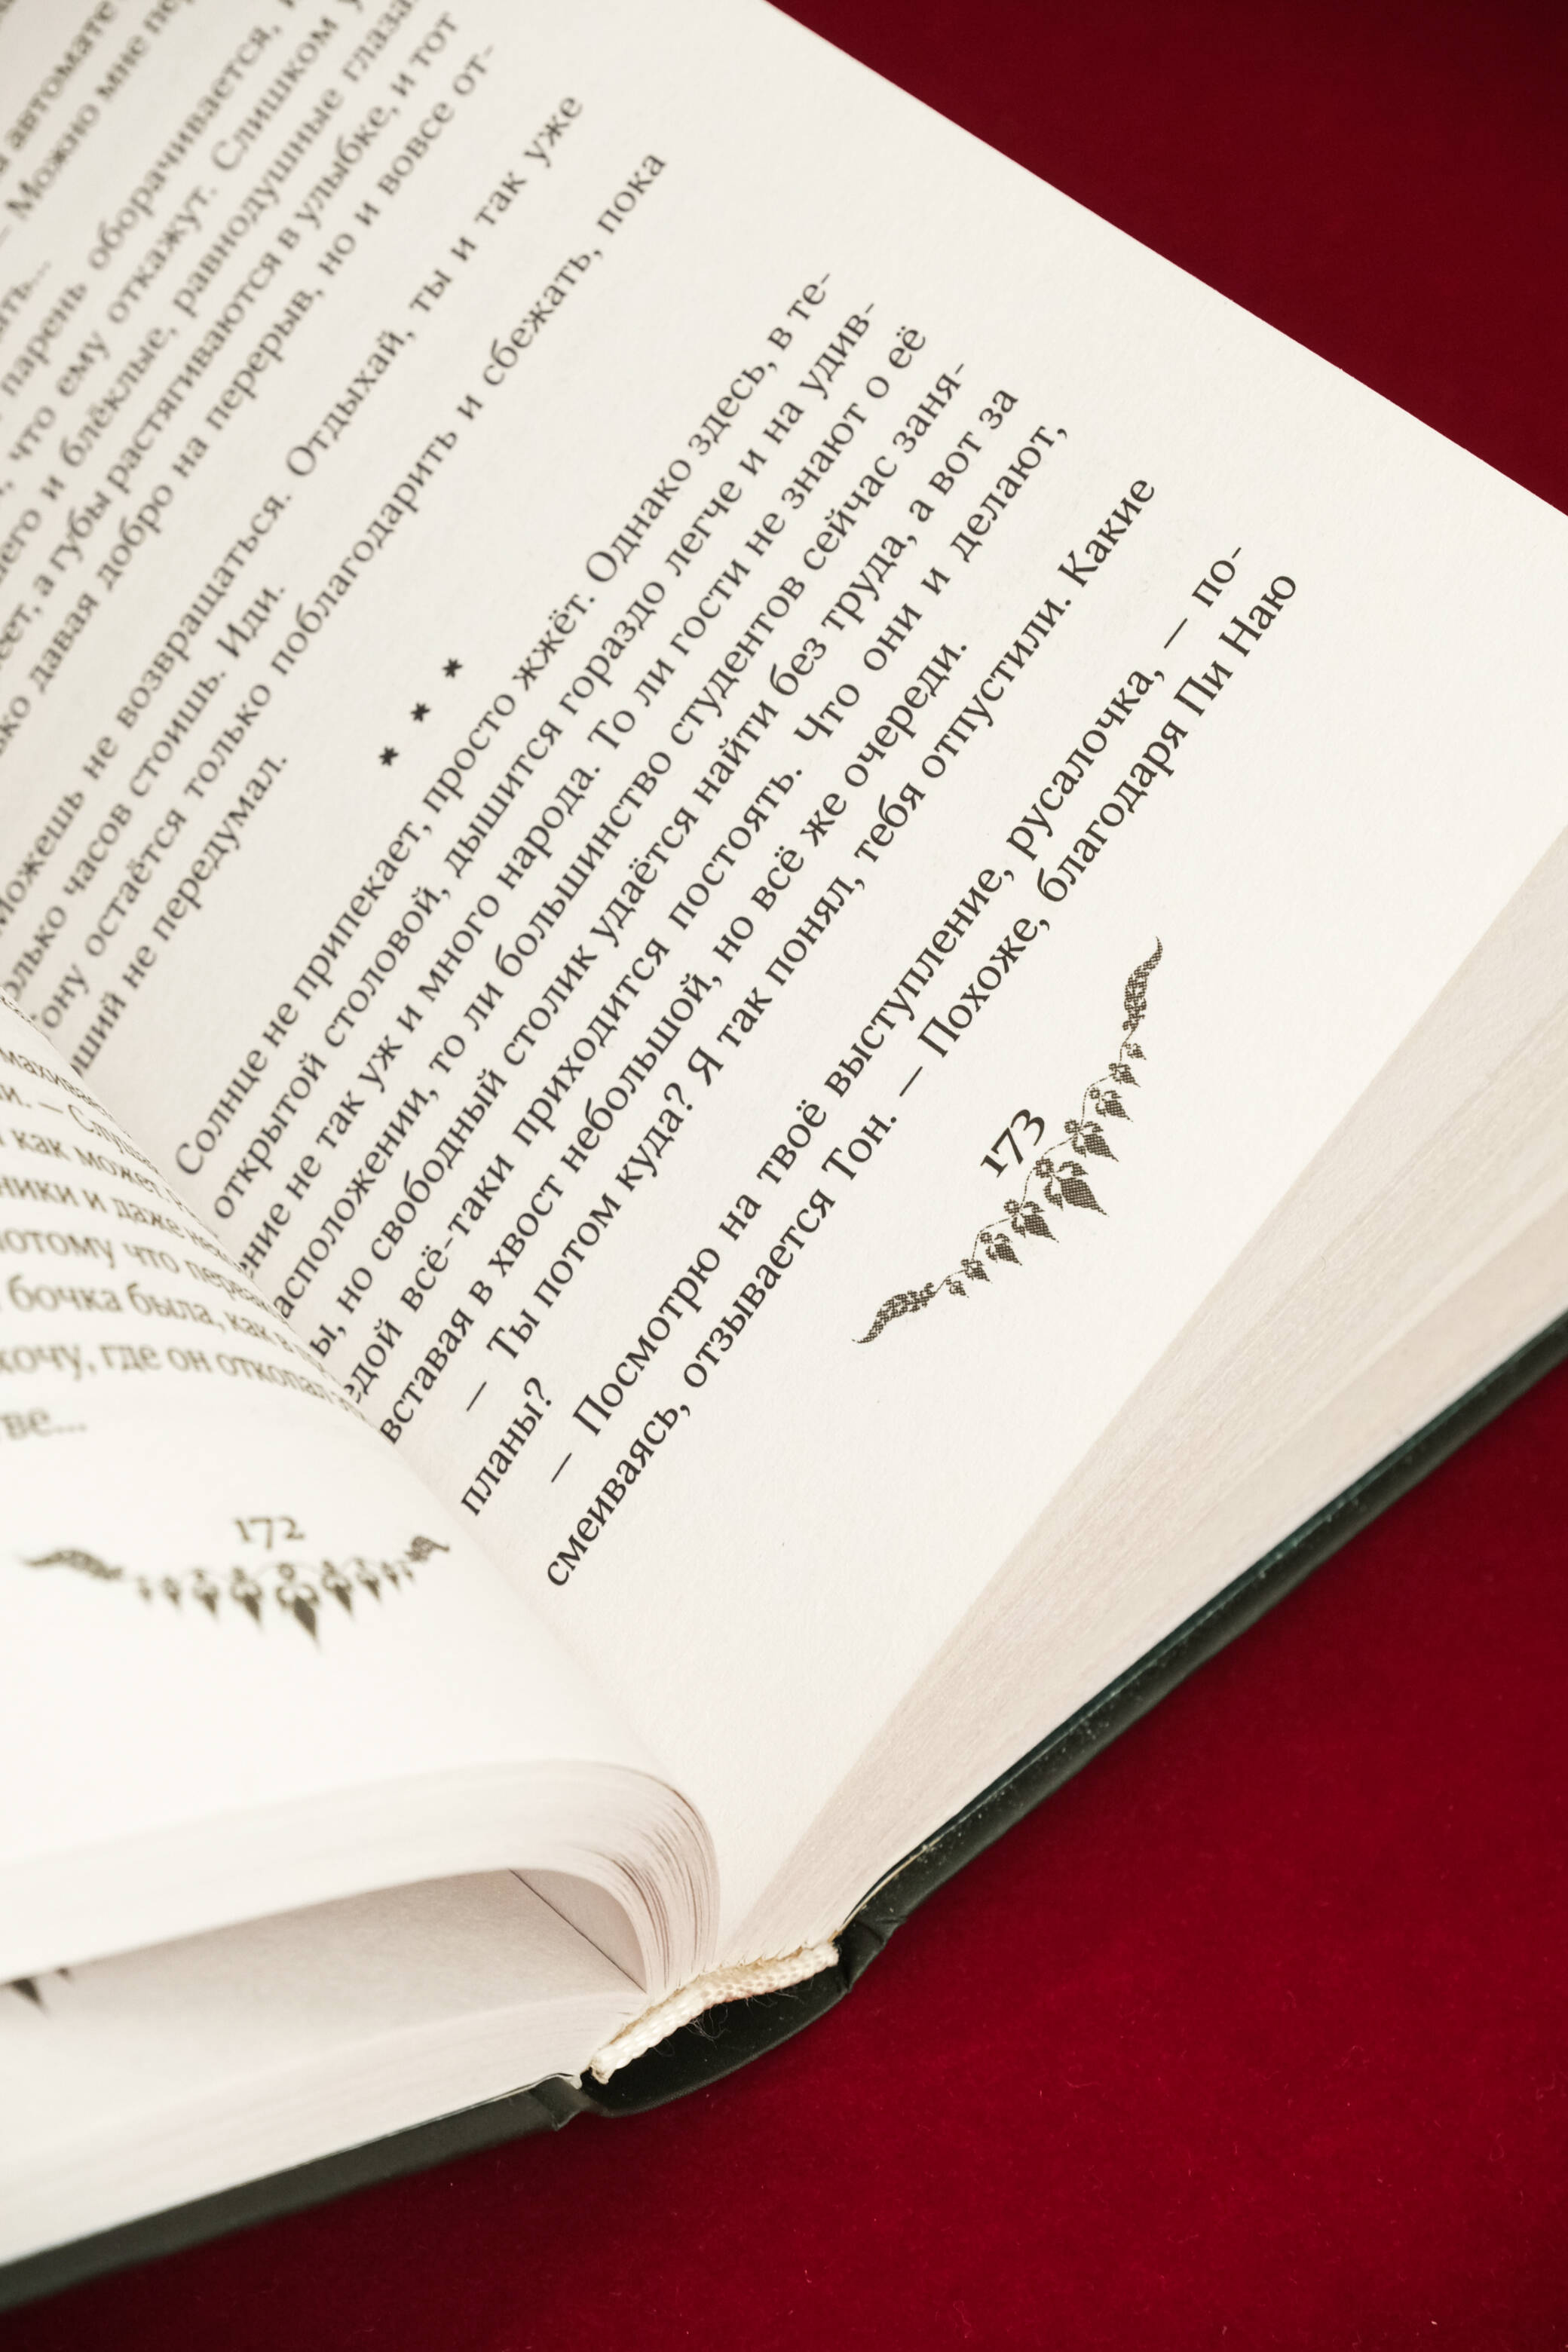 махива
и. — Слуш
как может
ники и даже
потому что
бочка была, как
хочу, где он откопал
ве...
172
автомате
— Можно мне
ать...
парень оборачивается,
что ему откажут. Слишком
и блёклые, равнодушные глаза
а губы растягиваются в улыбке, и тот
давая добро на перерыв, но и вовсе от-
можешь не возвращаться. Отдыхай, ты и так уже
олько часов стоишь. Иди.
ону остаётся только поблагодарить и сбежать, пока
ший не передумал.
* * *
Солнце не припекает, просто жжёт. Однако здесь, в те-
открытой столовой, дышится гораздо легче и на удив-
ение не так уж и много народа. То ли гости не знают о её
асположении, то ли большинство студентов сейчас заня-
ы, но свободный столик удаётся найти без труда, а вот за
едой всё-таки приходится постоять. Что они и делают,
вставая в хвост небольшой, но всё же очереди.
— Ты потом куда? Я так понял, тебя отпустили. Какие
планы?
— Посмотрю на твоё выступление, русалочка, — по-
смеиваясь, отзывается Тон. — Похоже, благодаря Пи Наю
173